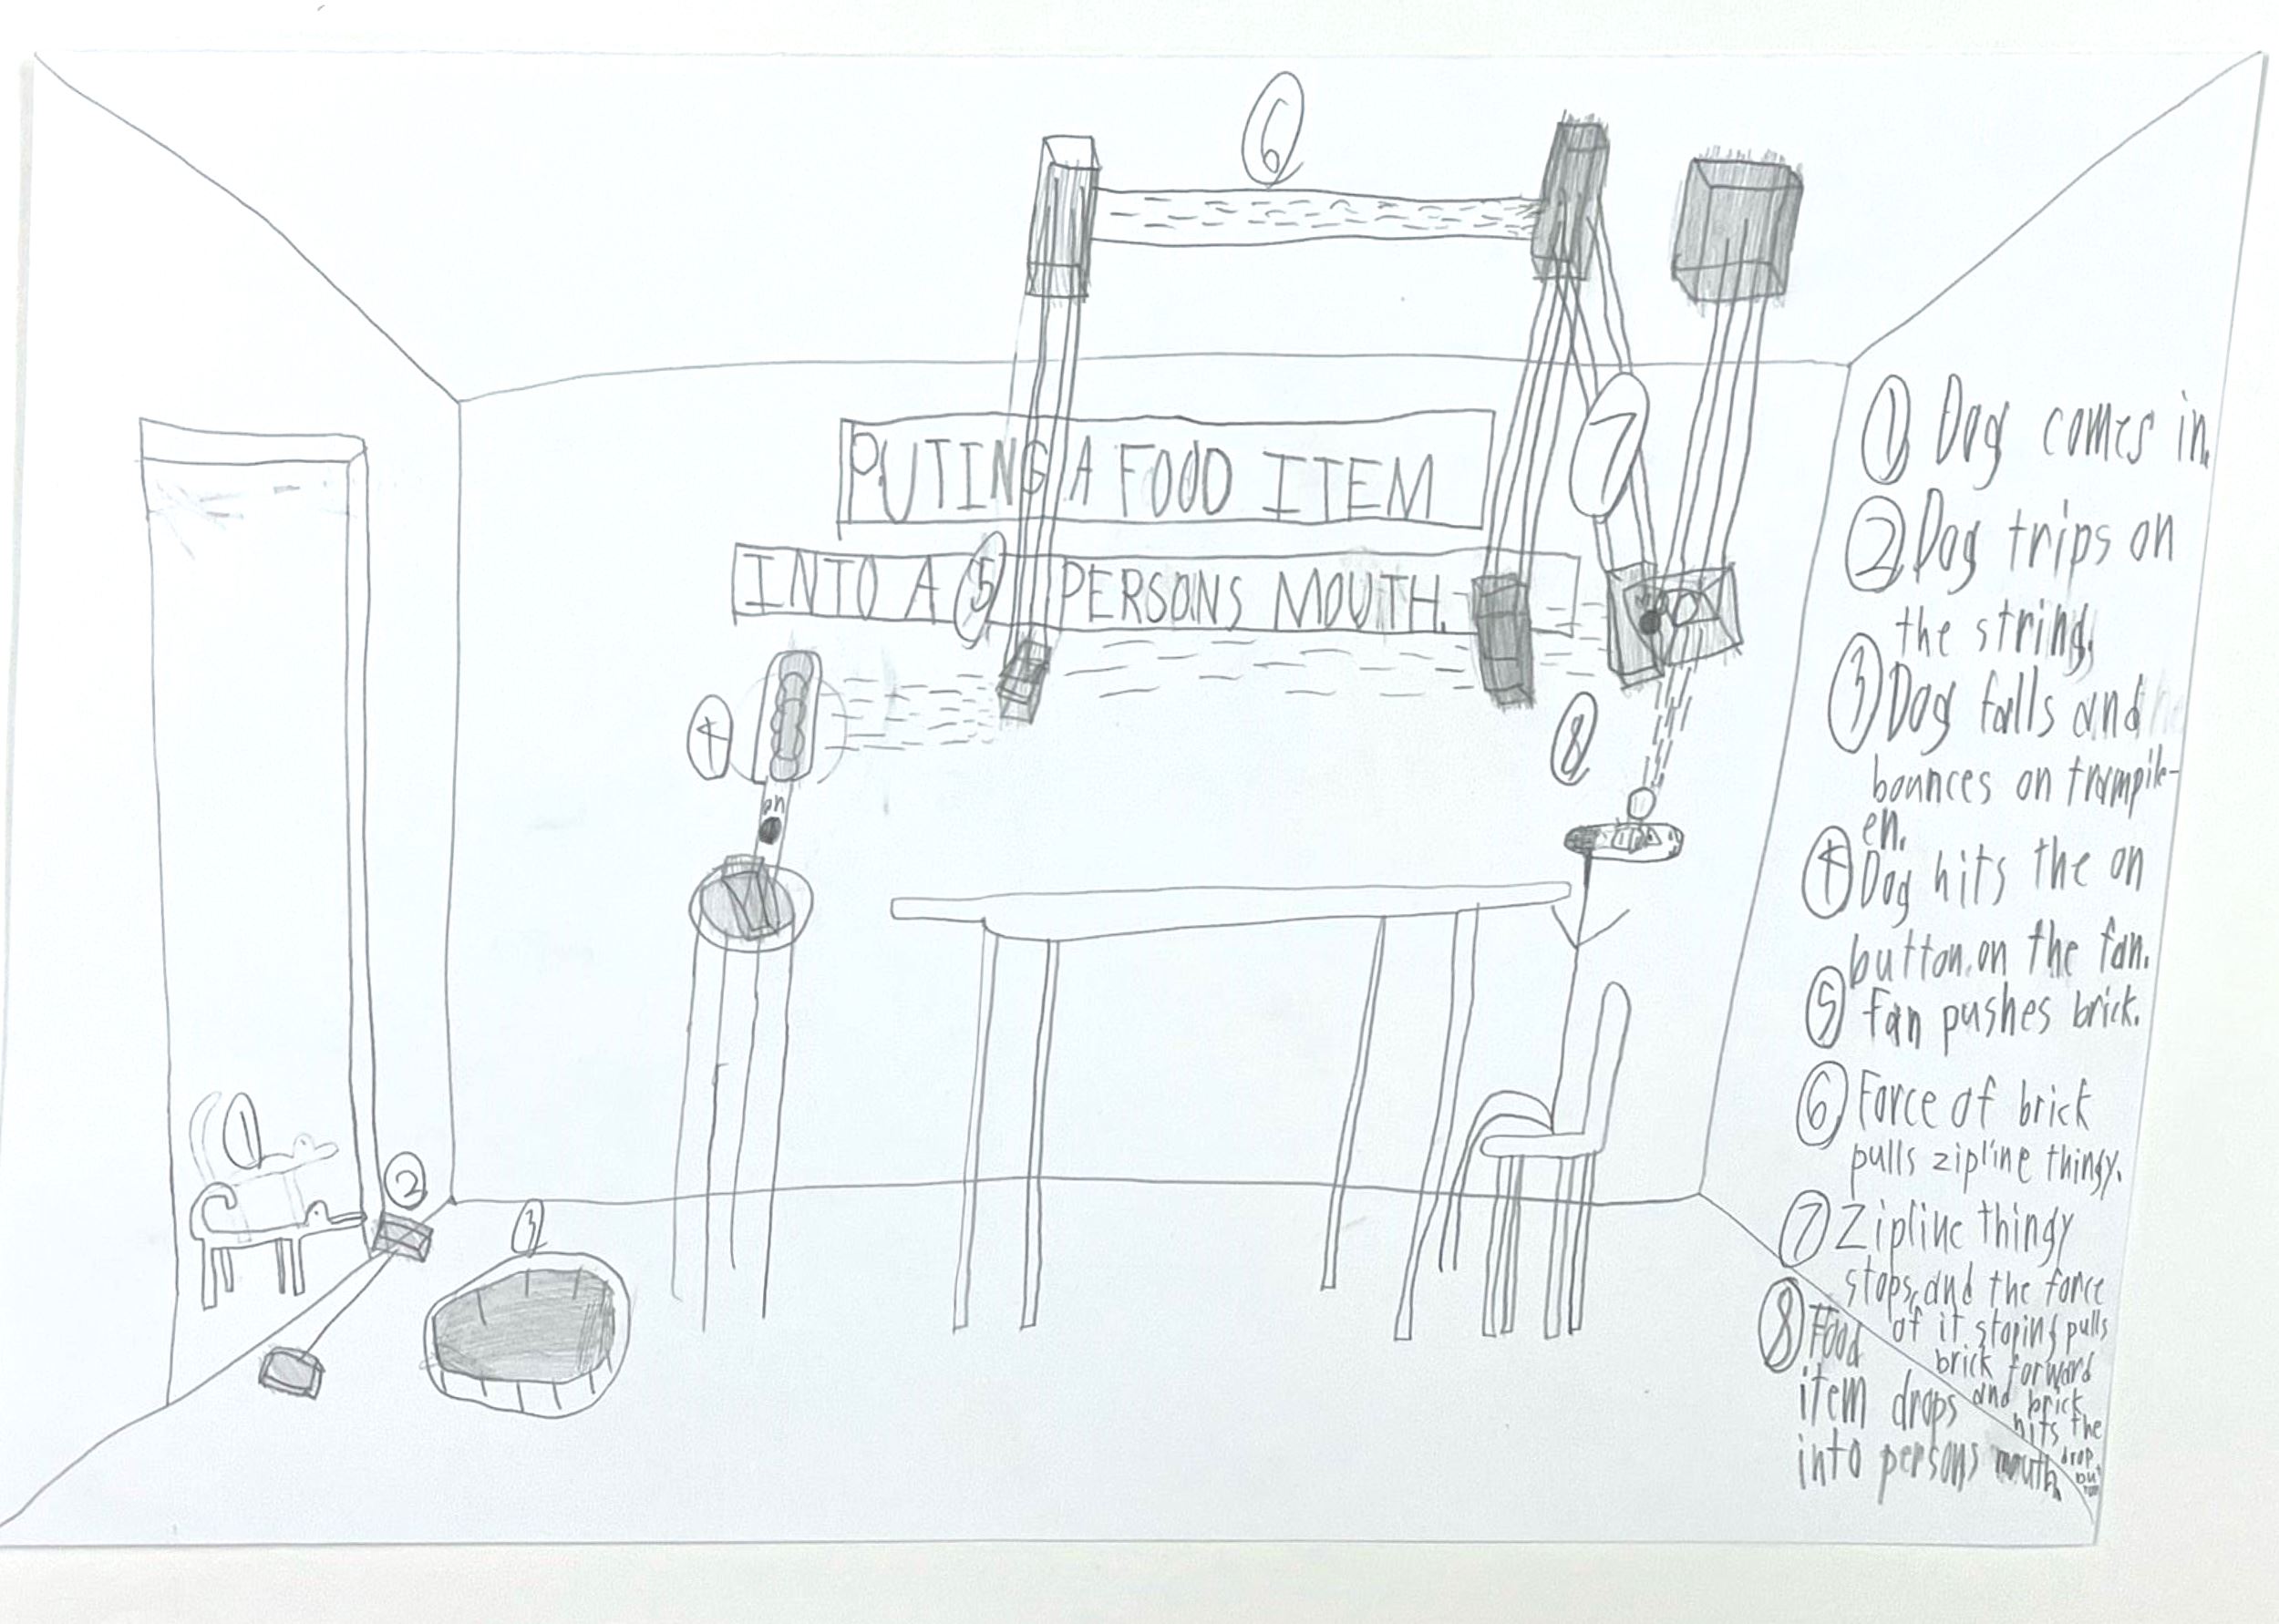 6
7
PUTING A FOOD ITEM
INTO A 5 PERSONS MOUTH.
4
on
8
1
2
3
1 Dog comes in.
2 Dog trips on
the string.
3 Dog falls and
bounces on trampile-
en.
4 Dog hits the on
button on the fan.
5 Fan pushes brick.
6 Force of brick
pulls zipline thingy.
7 Zipline thingy
stops, and the force
of it stoping pulls
brick forward
and brick
hits the
drop
8 Food
item drops
into persons mouth.